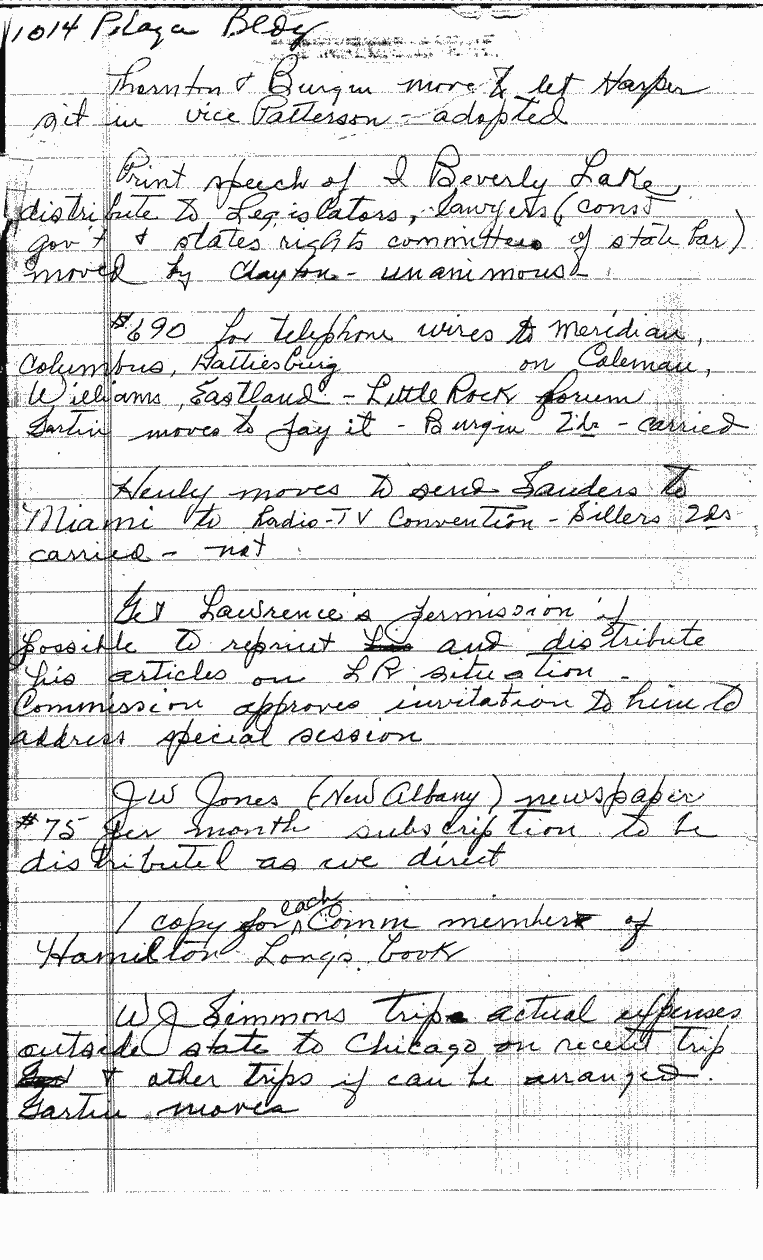 1014 Plaza Bldg
Thornton & Burgin move to let Harper
sit in vice Patterson - adopted
Print speech of I Beverly Lake,
distribute to Legislators, lawyers (const
gov't & states rights committees of state bar)
moved by Clayton - unanimous
$690 for telephone wires to Meridian,
Columbus, Hattiesburg on Coleman,
Williams, Eastland - Little Rock forum
Gartin moves to pay it - Burgin 2ds - carried
Henly moves to send Sanders to
Miami to Radio-TV Convention - Sillers 2ds
carried - not
Get Lawrence's permission if
possible to reprint and distribute
his articles on LR situation -
Commission approves invitation to him to
address special session
JW Jones (New Albany) newspaper
$75 per month subscription to be
distributed as we direct
1 copy for each Comm member of
Hamilton Long's book
WJ Simmons trip actual expenses
outside state to Chicago on recent trip
& other trips if can be arranged.
Gartin moves